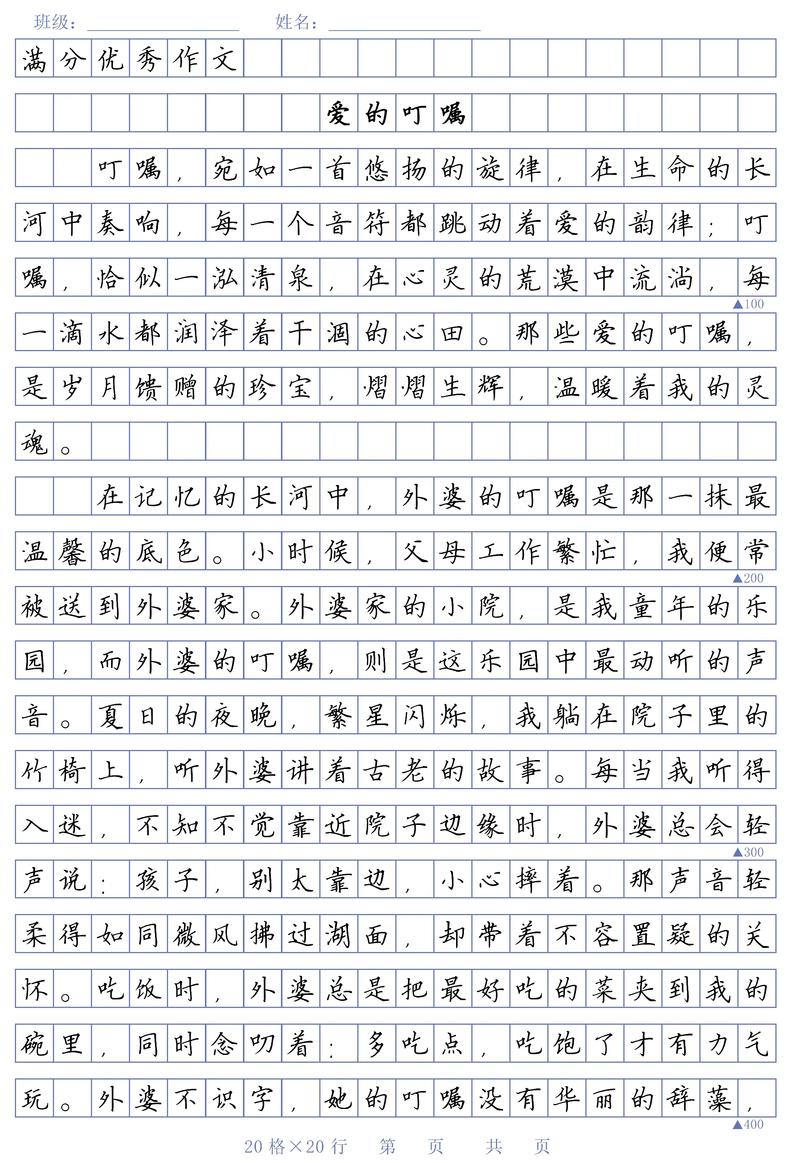 班级：________________ 姓名：________________
满分优秀作文
爱的叮嘱
叮嘱，宛如一首悠扬的旋律，在生命的长
河中奏响，每一个音符都跳动着爱的韵律；叮
嘱，恰似一泓清泉，在心灵的荒漠中流淌，每
▲100
一滴水都润泽着干涸的心田。那些爱的叮嘱，
是岁月馈赠的珍宝，熠熠生辉，温暖着我的灵
魂。
在记忆的长河中，外婆的叮嘱是那一抹最
温馨的底色。小时候，父母工作繁忙，我便常
▲200
被送到外婆家。外婆家的小院，是我童年的乐
园，而外婆的叮嘱，则是这乐园中最动听的声
音。夏日的夜晚，繁星闪烁，我躺在院子里的
竹椅上，听外婆讲着古老的故事。每当我听得
入迷，不知不觉靠近院子边缘时，外婆总会轻
▲300
声说：孩子，别太靠边，小心摔着。那声音轻
柔得如同微风拂过湖面，却带着不容置疑的关
怀。吃饭时，外婆总是把最好吃的菜夹到我的
碗里，同时念叨着：多吃点，吃饱了才有力气
玩。外婆不识字，她的叮嘱没有华丽的辞藻，
▲400
20格×20行 第 页 共 页